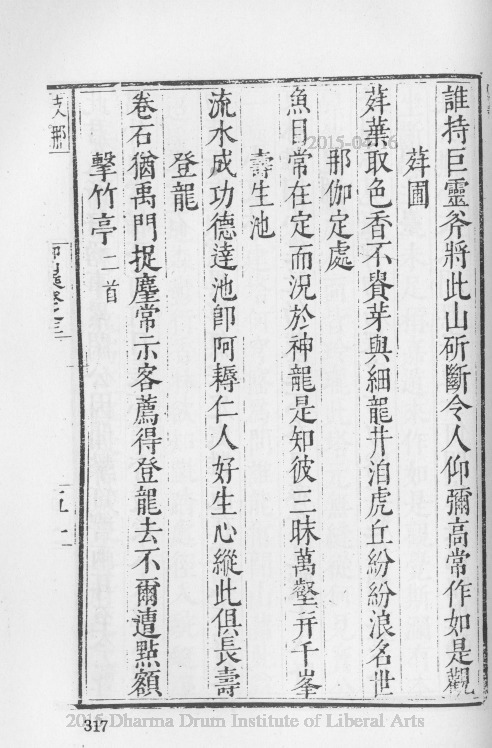 誰持巨靈斧將此山斫斷令人仰彌高常作如是觀
茻圃
茻華取色香不貴芽與細龍井洎虎丘紛紛浪名世
那伽定處
魚目常在定而況於神龍是知彼三昧萬壑幷千峯
壽生池
流水成功德達池卽阿耨仁人好生心縱此俱長壽
登龍
卷石猶禹門捉麈常示客薦得登龍去不爾遭點額
擊竹亭二首
支那
五十
317
2015-04-16
2015 Dharma Drum Institute of Liberal Arts